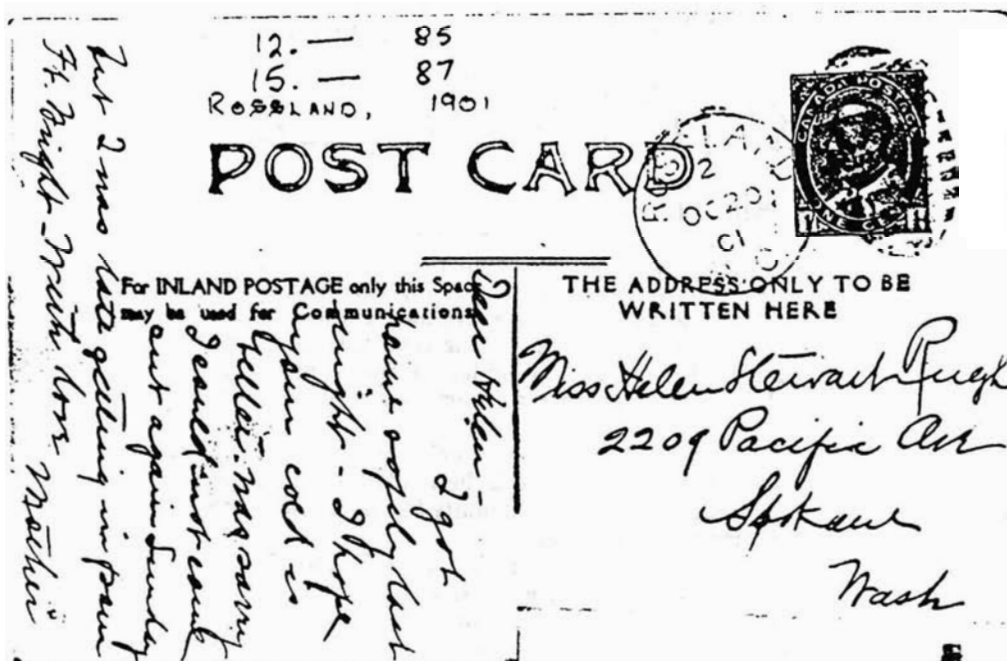 12. — 85
15. — 87
ROSSLAND, 1901
POST CARD
ROSSLAND
2
OC 20
01
CANADA POSTAGE
1 ONE CENT 1
For INLAND POSTAGE only this Space
may be used for Communications
THE ADDRESS ONLY TO BE
WRITTEN HERE
Miss Helen Stewart
2209 Pacific Ave
Spokane
Wash
Dear Helen –
I got
home safely last
night – I hope
your cold is
better. Was sorry
I could not come
out again Sunday
but I was late getting in from
Ft. Wright – With love Mother